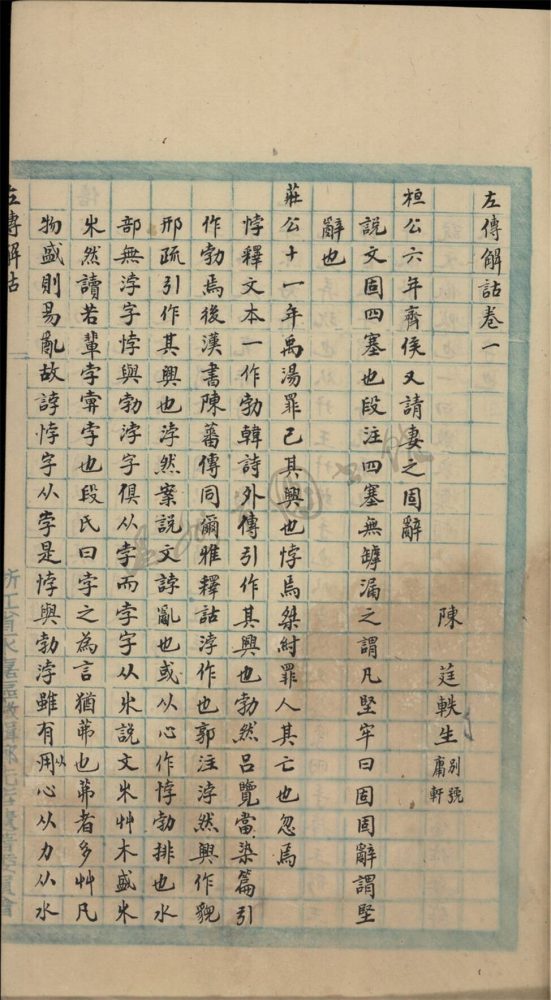 左傳解詁卷一
陳 莛軼生 別號庸軒
桓公六年齊侯又請妻之固辭
說文固四塞也段注四塞無罅漏之謂凡堅牢曰固固辭謂堅
辭也
莊公十一年禹湯罪己其興也悖焉桀紂罪人其亡也忽焉
悖釋文本一作勃韓詩外傳引作其興也勃然呂覽當染篇引
作勃焉後漢書陳蕃傳同爾雅釋詁浡作也郭注浡然興作貌
邢疏引作其興也浡然案說文誖亂也或从心作悖勃排也水
部無浡字悖與勃浡字俱从孛而孛字从𣎵說文𣎵艸木盛𣎵
𣎵然讀若輩孛孛也段氏曰孛之為言猶茀也茀者多艸凡
物盛則易亂故誖悖字从孛是悖與勃浡雖有用以心从力从水
左傳解詁
浙江省永嘉區徵輯鄉先哲遺著委員會